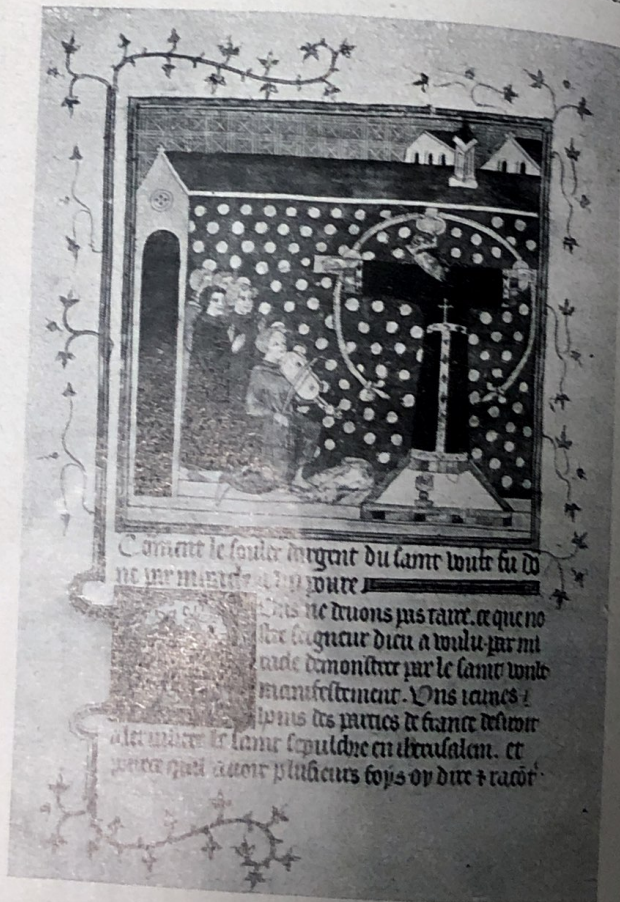 Coment le souler dargent du saint voult fu do
ne par miracle a un poure
ous ne deuons pas taire. ce que no
stre seigneur dieu a voulu par mi
racle demonstrer par le saint voult
manifestement. Uns ieunes
homs des parties de france desiroit
aler visiter le saint sepulchre en iherusalem. et
pource quil auoit plusieurs foys oy dire & racot